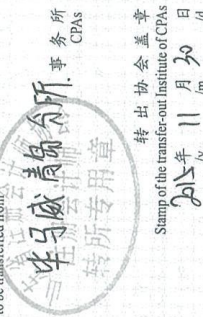 to be transferred from
毕马威青岛分所 事务所
CPAs
注册会计师
转所专用章
转出协会盖章
Stamp of the transfer-out Institute of CPAs
2015年 11 月 30 日
/y /m /d